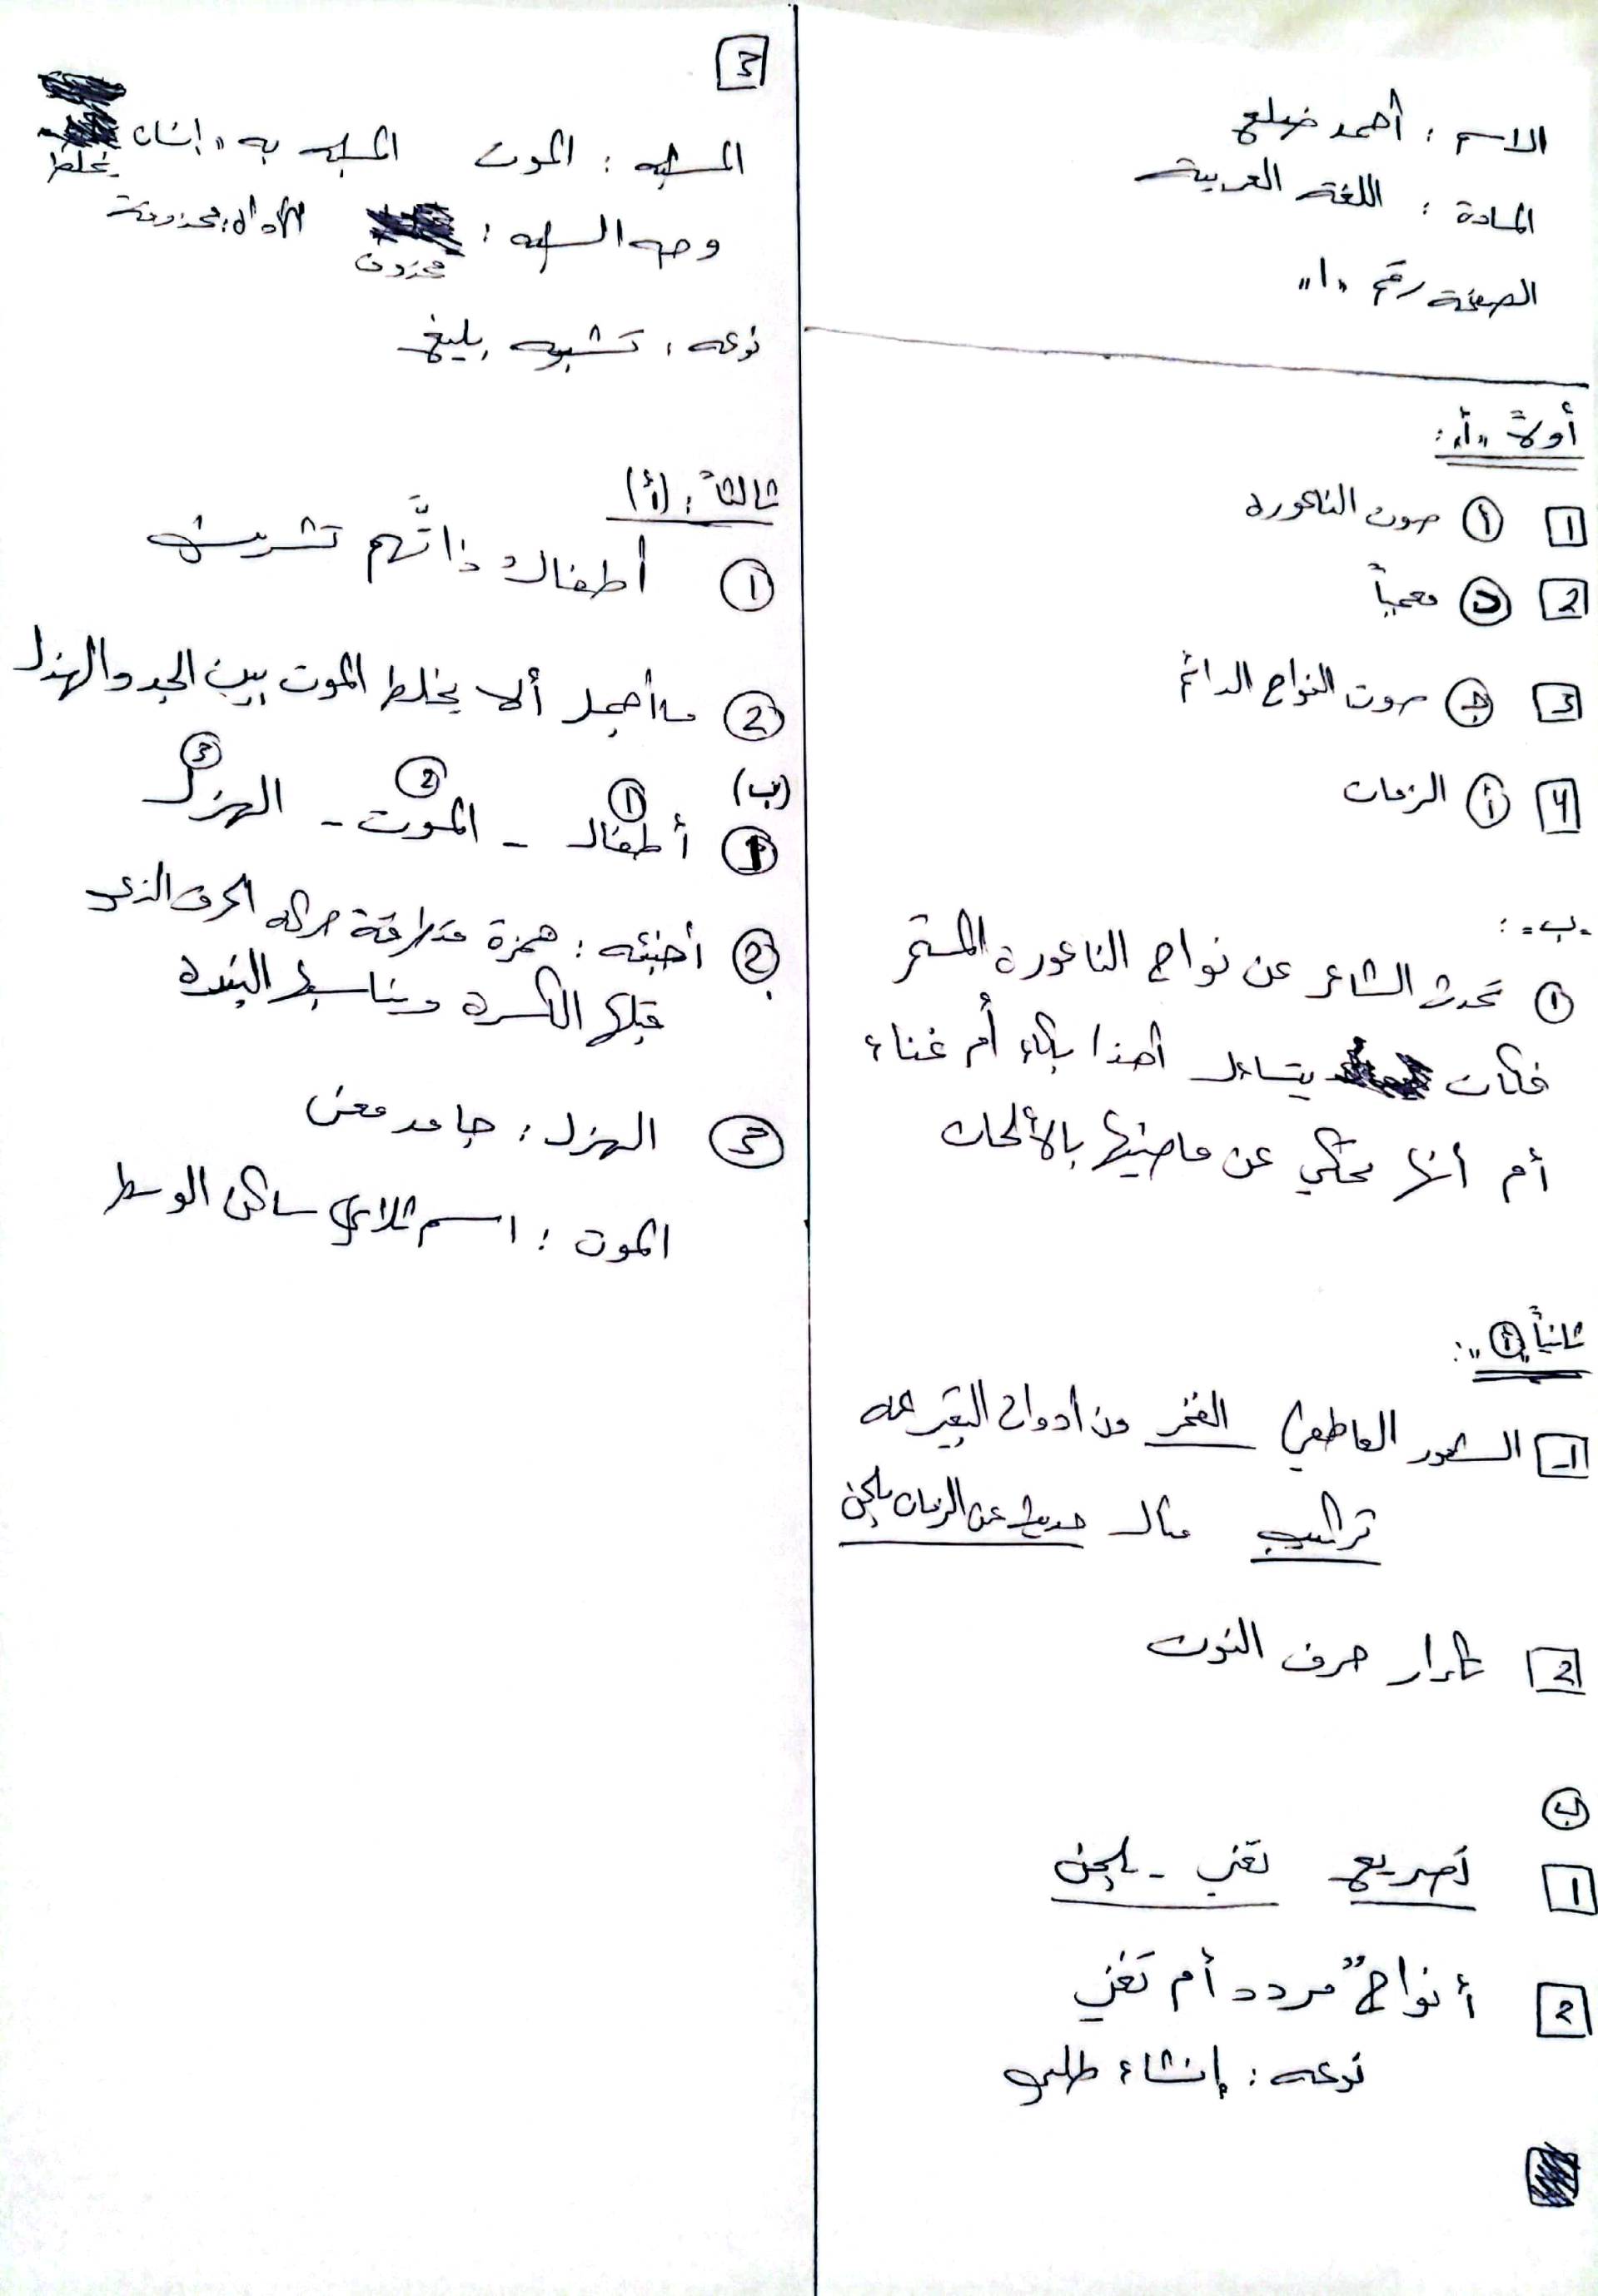 الاسم : أحمد
المادة : اللغة العربية
الصفحة رقم "1"
أولاً "أ":
1 أ صوت الناعورة
2 د معجباً
3 ج صوت النواح الدائم
4 أ الزمان
"ب" :
1 تحدث الشاعر عن نواح الناعورة المستمر
فكان يتساءل أهذا بكاء أم غناء
أم أنها تحكي عن ماضيها بالألحان
ثانياً "أ":
1- الشعور العاطفي الفخر من أدوات التعبير عنه
تراكيب مثال حديث عن الزمان بلحن
2 تكرار حرف النون
ب
1 تصريع تغني - بلحن
2 أ نواحٌ مردد أم تغني
نوعه : إنشاء طلبي
3
المشبه : الموت المشبه به : إنسان
يخلط
وجه الشبه : محذوف الأداة : محذوفة
نوعه : تشبيه بليغ
ثالثاً : (أ)
1 أطفال تشرين
2 ما أجمل ألا يخلط الموت بين الجد والهزل
(ب)
1 أطفال 1 - الموت 2 - الهزل 3
2 أخبئه : همزة متطرفة حركة الحرف الذي
قبلها الكسرة ويناسبها النبرة
3 الهزل : جامد معنى
الموت : اسم ثلاثي ساكن الوسط